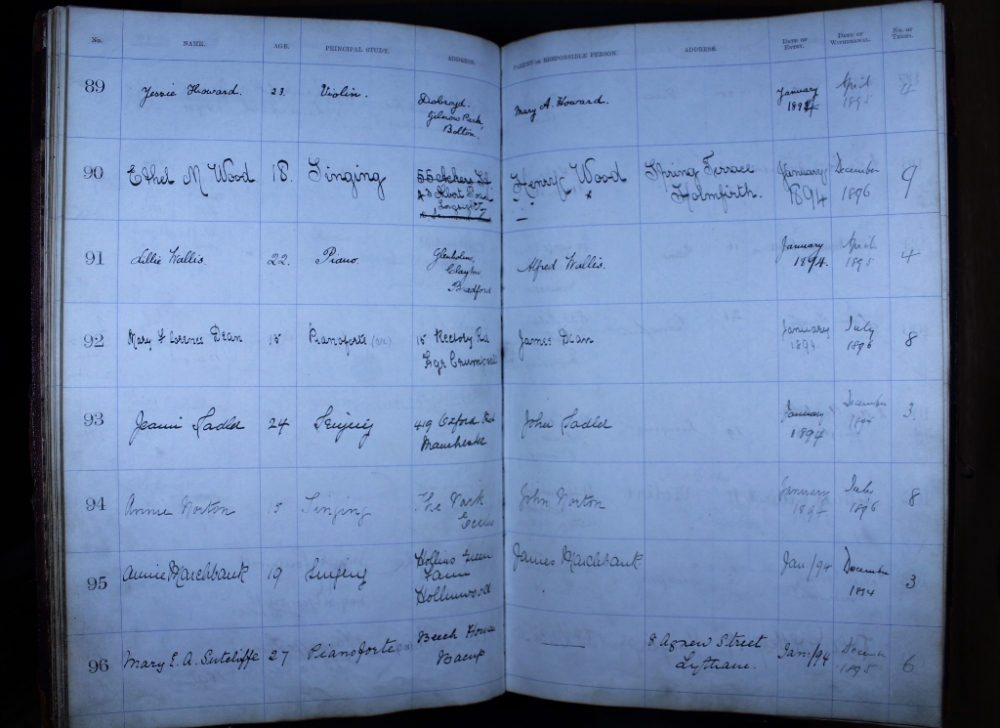 No. NAME. AGE. PRINCIPAL STUDY. ADDRESS. PARENT OR RESPONSIBLE PERSON. ADDRESS. DATE OF ENTRY. DATE OF WITHDRAWAL. No. OF TERMS.
89 Jessie Howard. 23. Violin. Mary A. Howard. January 1894 April 1895
Gilnow Park,
Bolton.
90 Ethel M Wood 18. Singing Henry Wood Spring Terrace Holmfirth. January 1894 December 1896 9
91 Lillie Wallis. 22. Piano. Glenholm, Clayton Bradford Alfred Wallis. January 1894. April 1895 4
92 Mary Florence Dean 15 Pianoforte 15 Rectory Rd James Dean January 1894 July 1896 8
93 Jeanie Sadler 24 Singing 419 Oxford Rd Manchester John Sadler January 1894 December 3
94 Annie Norton Singing The Park Eccles John Norton January July 1896 8
95 Annie Marchbank 19 Singing Hollins Green Farm Hollinwood James Marchbank Jan/94 December 1894 3
96 Mary E. A. Sutcliffe 27 Pianoforte Beech House Bacup 8 Agnew Street Lytham. Jan/94 December 1895 6